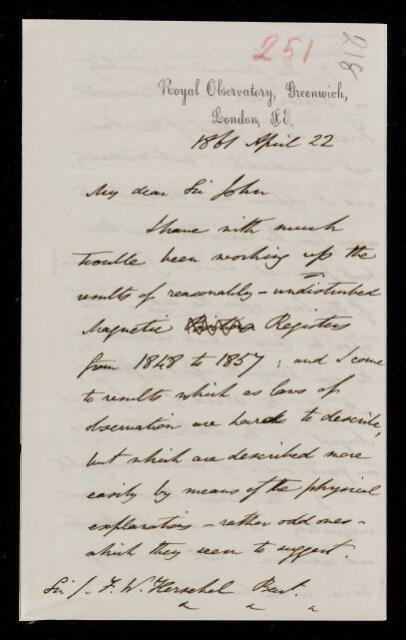 251
218
Royal Observatory, Greenwich,
London, S.E.
1861 April 22
My dear Sir John
I have with much
trouble been working up the
results of reasonably - undisturbed
Magnetic Registers
from 1848 to 1857; and I come
to results which as laws of
observation are hard to describe,
but which are described more
easily by means of the physical
explanations - rather odd ones -
which they seem to suggest.
Sir J. F. W. Herschel Bart.